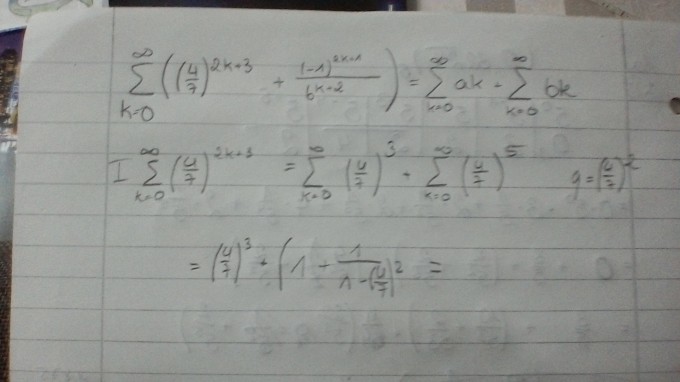 ∞∑k=0 ((4/7)^2k+3 + (-1)^2k+1 / 6^k+2) = ∞∑k=0 ak - ∞∑k=0 bk
I ∞∑k=0 (4/7)^2k+3 = ∞∑k=0 (4/7)^3 + ∞∑k=0 (4/7)^5 q=(4/7)^2
= (4/7)^3 + (1 + 1 / 1-(4/7)^2 =